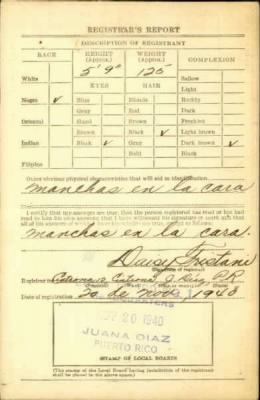 REGISTRAR'S REPORT
DESCRIPTION OF REGISTRANT
RACE HEIGHT (Approx.) WEIGHT (Approx.) COMPLEXION
5' 9" 125
White Sallow
EYES HAIR Light
Negro ✓ Blue Blonde Ruddy
Gray Red Dark
Oriental Hazel Brown Freckled
Brown Black ✓ Light brown
Indian Black ✓ Gray Dark brown ✓
Bald Black
Filipino
Other obvious physical characteristics that will aid in identification
manchas en la cara
I certify that my answers are true; that the person registered has read or has had read to him his own answers; that I have witnessed his signature or mark and that all of his answers of which I have knowledge are true, except as follows:
manchas en la cara.
Registrar for P.R.
Date of registration 1940
20 1940
JUANA DIAZ
PUERTO RICO
STAMP OF LOCAL BOARD
(The stamp of the Local Board having jurisdiction of the registrant
shall be placed in the above space.)